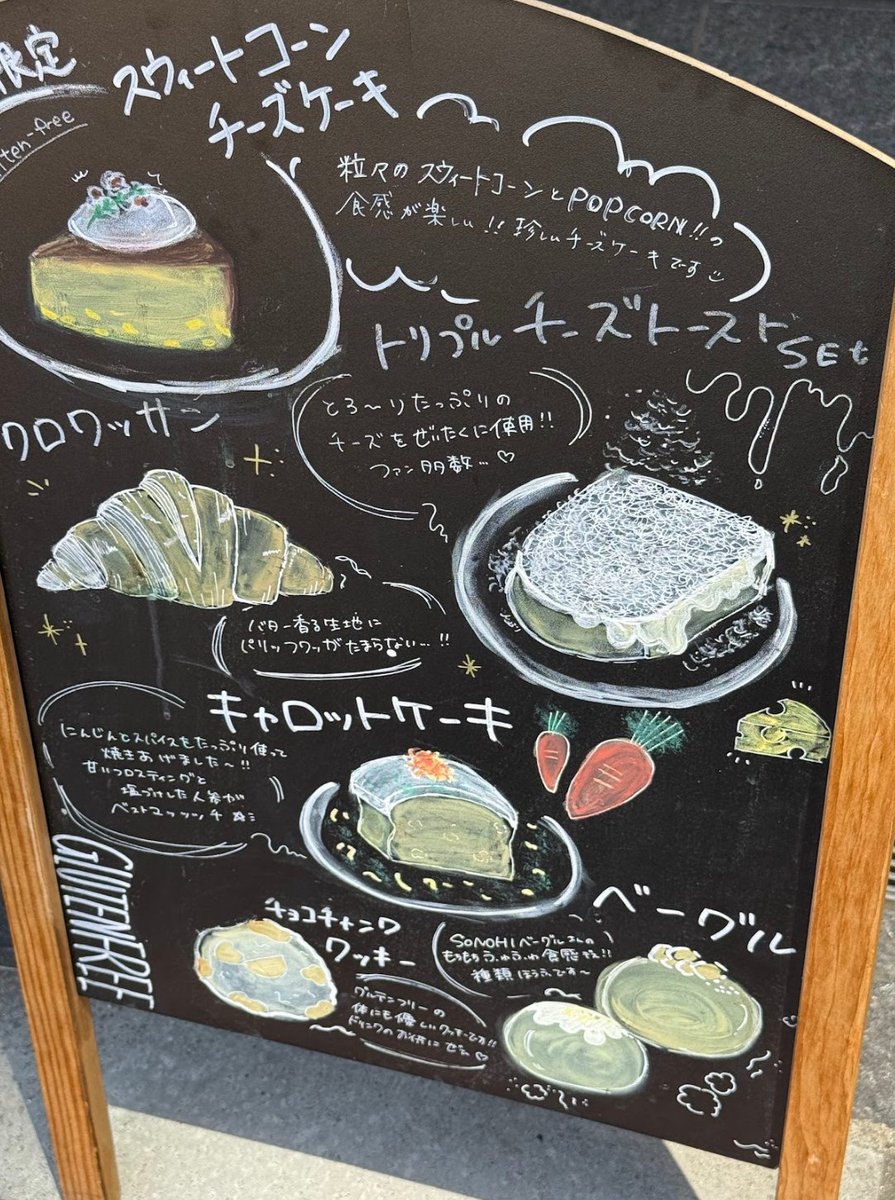 限定
スウィートコーン
チーズケーキ
ten-free
粒々のスウィートコーンとPOPCORN!!の
食感が楽しい!!珍しいチーズケーキです
トリプルチーズトーストSEt
とろ〜りたっぷりの
チーズをぜいたくに使用!!
ファン多数…♡
クロワッサン
バター香る生地に
パリッフワッがたまらない…!!
キャロットケーキ
にんじんとスパイスをたっぷり使って
焼きあげました〜!!
甘いフロスティングと
塩づけした人参が
ベストマッッッチ
GLUTENFREE
チョコチャンク
クッキー
グルテンフリーの
体にも優しいクッキーです!!
ドリンクのお供にぜひ♡
ベーグル
SONOHIベーグルさんの
もちもちふわふわ食感
種類ほうふです〜